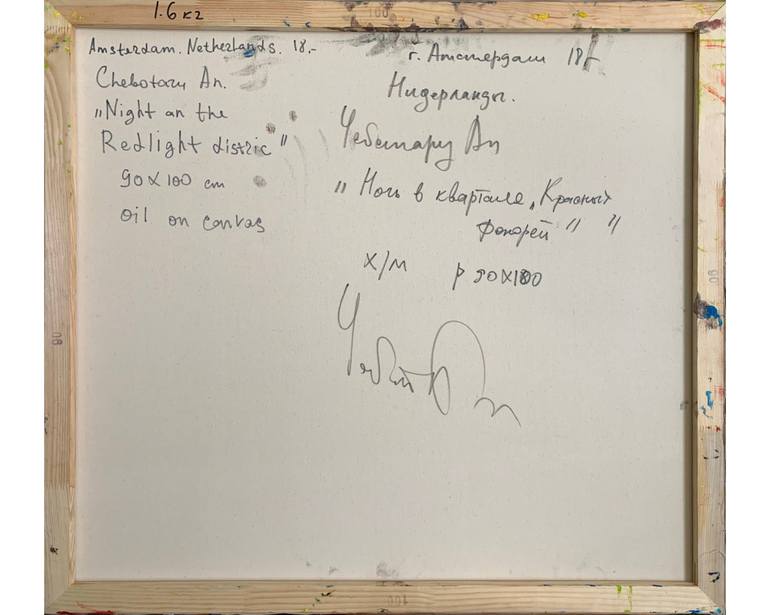 1.6 кг
Amsterdam. Netherlands. 18.-
Chebotaru An.
„Night an the
Redlight distric"
90x100 cm
oil on canvas
г. Амстердам 18г
Нидерланды.
Чеботару Ан
„ Ночь в квартале „Красных
фонарей" "
х/м р 90х100
100
80
80
100